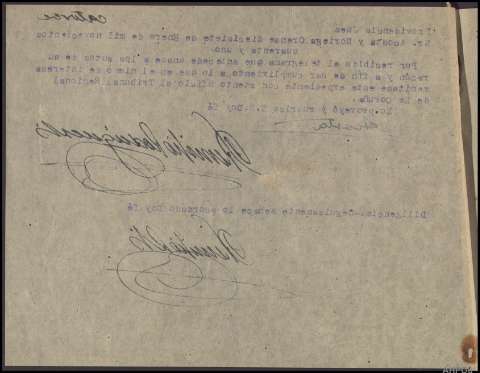 catorce
Providencia Juez
Sr. Acosta y Noriega Orense diecisiete de Enero de mil novecientos
cuarenta y uno.
Por recibido el telegrama que antecede únase a los autos de su
razón y a fin de dar cumplimiento a lo que en el mismo se interesa
remítase este expediente con atento oficio al Tribunal Regional
de La Coruña.
Lo proveyó y rubrica S.S. Doy fé
Acosta
Diligencia.-Seguidamente se hace lo acordado doy fé
AHPOu